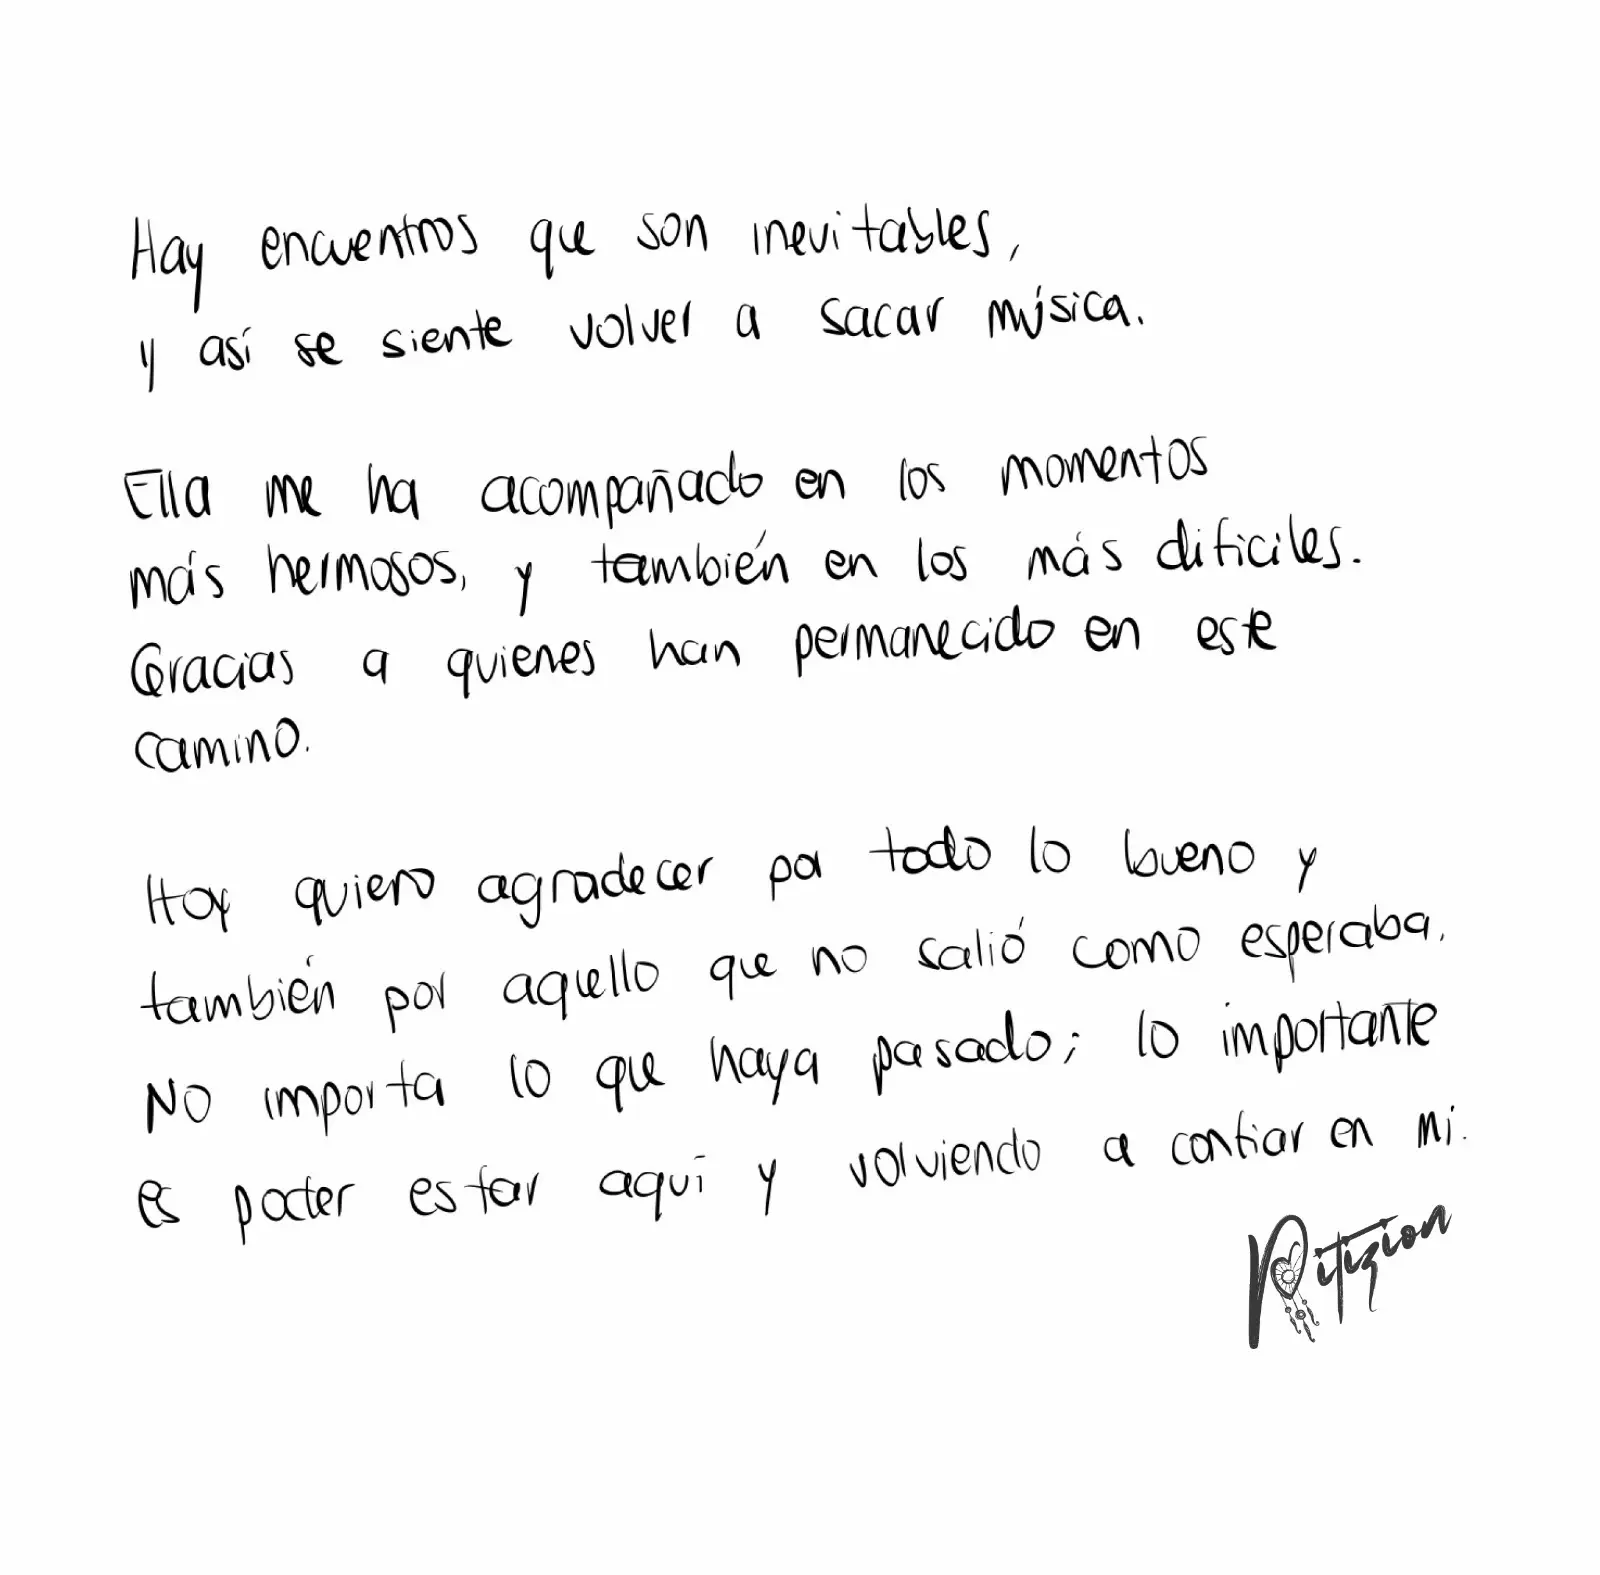 Hay encuentros que son inevitables,
y así se siente volver a sacar música.
Ella me ha acompañado en los momentos
más hermosos, y también en los más dificiles.
Gracias a quienes han permanecido en este
camino.
Hoy quiero agradecer por todo lo bueno y
también por aquello que no salió como esperaba.
No importa lo que haya pasado; lo importante
es poder estar aquí y volviendo a confiar en mi.
Nitizion